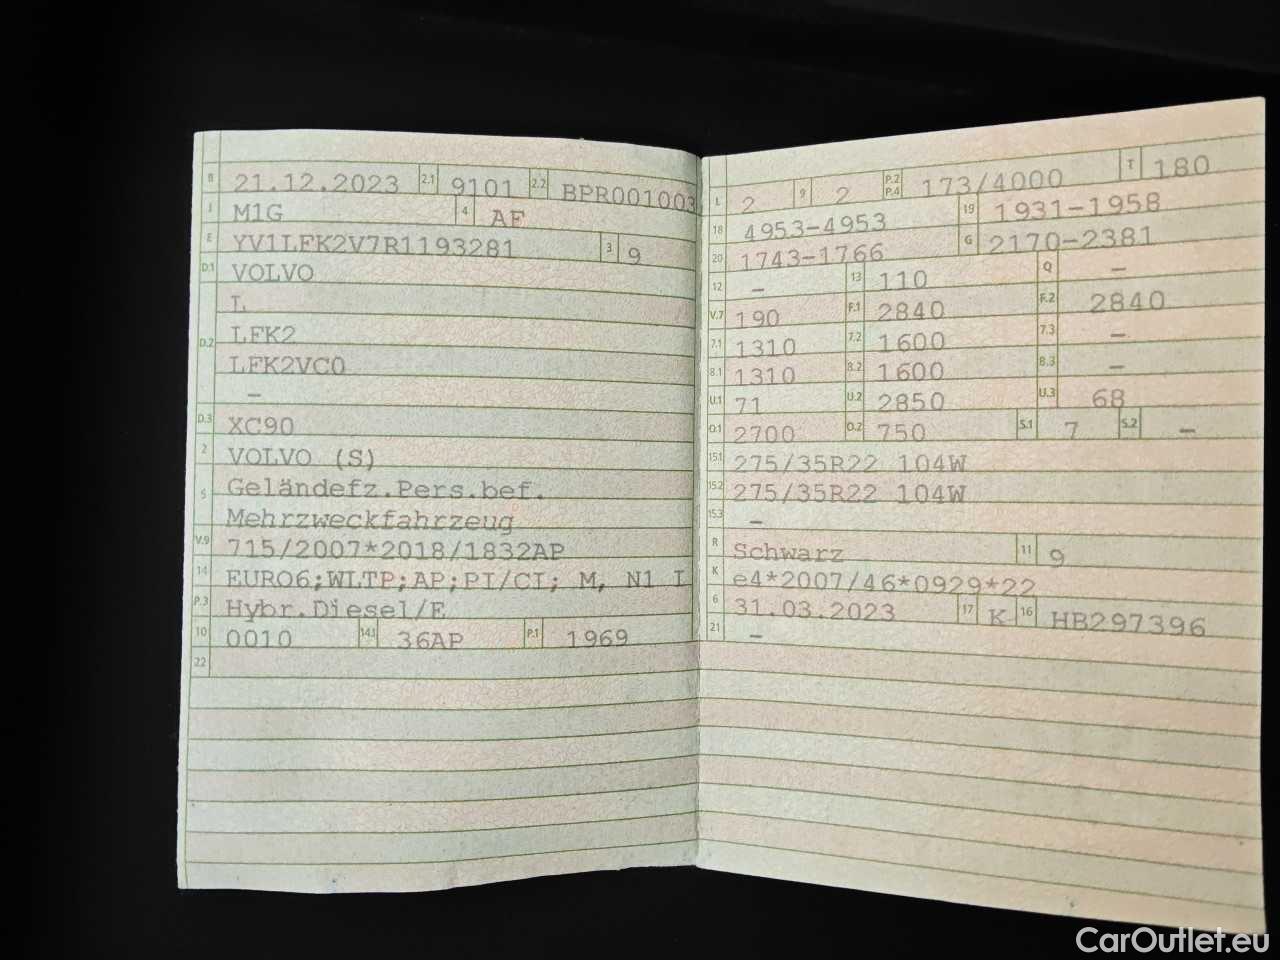 B 21.12.2023 2.1 9101 2.2 BPR001003
J M1G 4 AF
E YV1LFK2V7R1193281 3 9
D.1 VOLVO
L
D.2 LFK2
LFK2VC0
–
D.3 XC90
2 VOLVO (S)
5 Geländefz.Pers.bef.
Mehrzweckfahrzeug
V.9 715/2007*2018/1832AP
14 EURO6;WLTP;AP;PI/CI; M, N1 I
P.3 Hybr.Diesel/E
10 0010 14.1 36AP P.1 1969
22
L 2 9 2 P.2 P.4 173/4000 T 180
18 4953-4953 19 1931-1958
20 1743-1766 G 2170-2381
12 – 13 110 Q –
V.7 190 F.1 2840 F.2 2840
7.1 1310 7.2 1600 7.3 –
8.1 1310 8.2 1600 8.3 –
U.1 71 U.2 2850 U.3 68
O.1 2700 O.2 750 S.1 7 S.2 –
15.1 275/35R22 104W
15.2 275/35R22 104W
15.3 –
R Schwarz 11 9
K e4*2007/46*0929*22
6 31.03.2023 17 K 16 HB297396
21 –
CarOutlet.eu